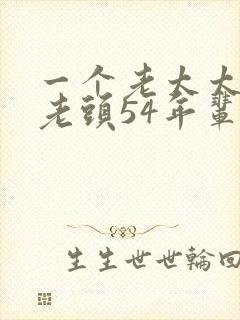 一个老太太
老頭54年輩
生生世世輪回